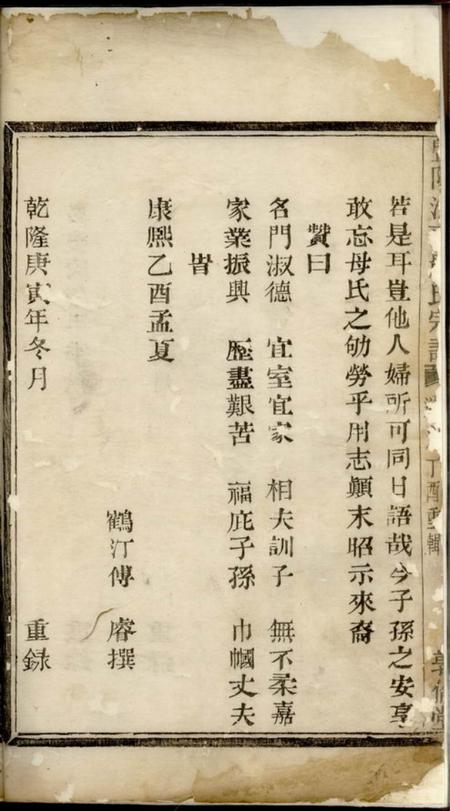 若是耳豈他人婦所可同日語哉今子孫之安享
敢忘母氏之劬勞乎用志顛末昭示來裔
贊曰
名門淑德 宜室宜家 相夫訓子 無不柔嘉
家業振興 歷盡艱苦 福庇子孫 巾幗丈夫
旹
康熙乙酉孟夏
鶴汀傅 睿撰
乾隆庚寅年冬月 重録